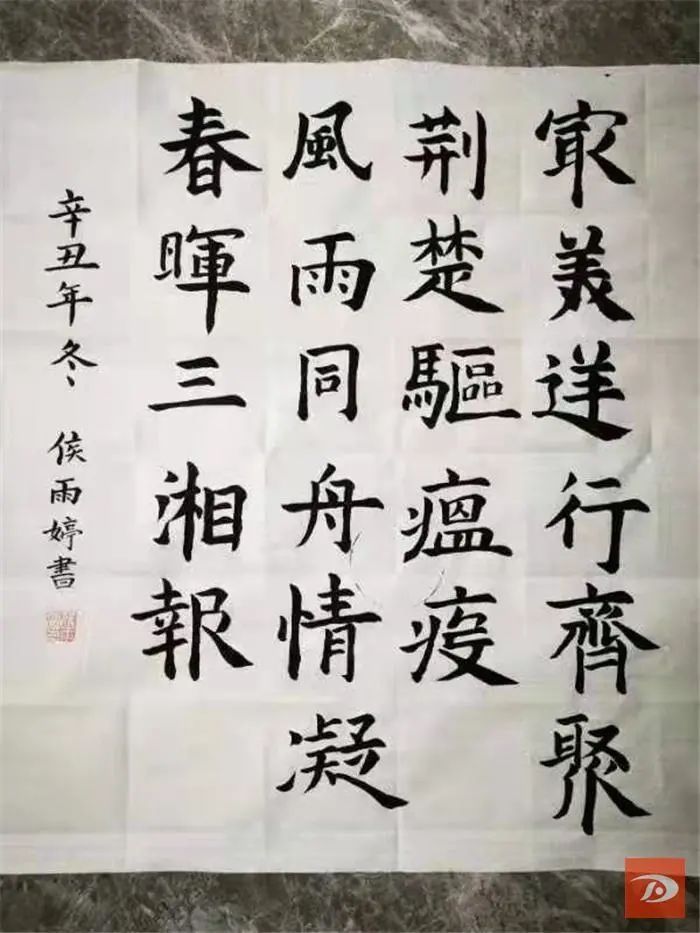 㝡美逆行齊聚
荆楚驅瘟疫
風雨同舟情凝
春暉三湘報
辛丑年冬 侯雨婷書